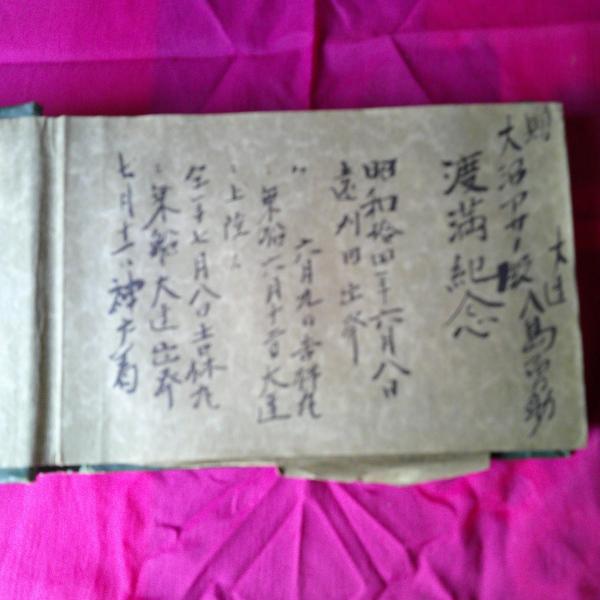 則
大連
大沼アサ殿 八島
渡満紀念
昭和拾四年六月八日
遠刈田出発
〃 六月九日吉林丸
〃乗船六月十二日大連
〃上陸〃
仝年七月八日吉林丸
〃乗船大連出発
七月十一日神戸着